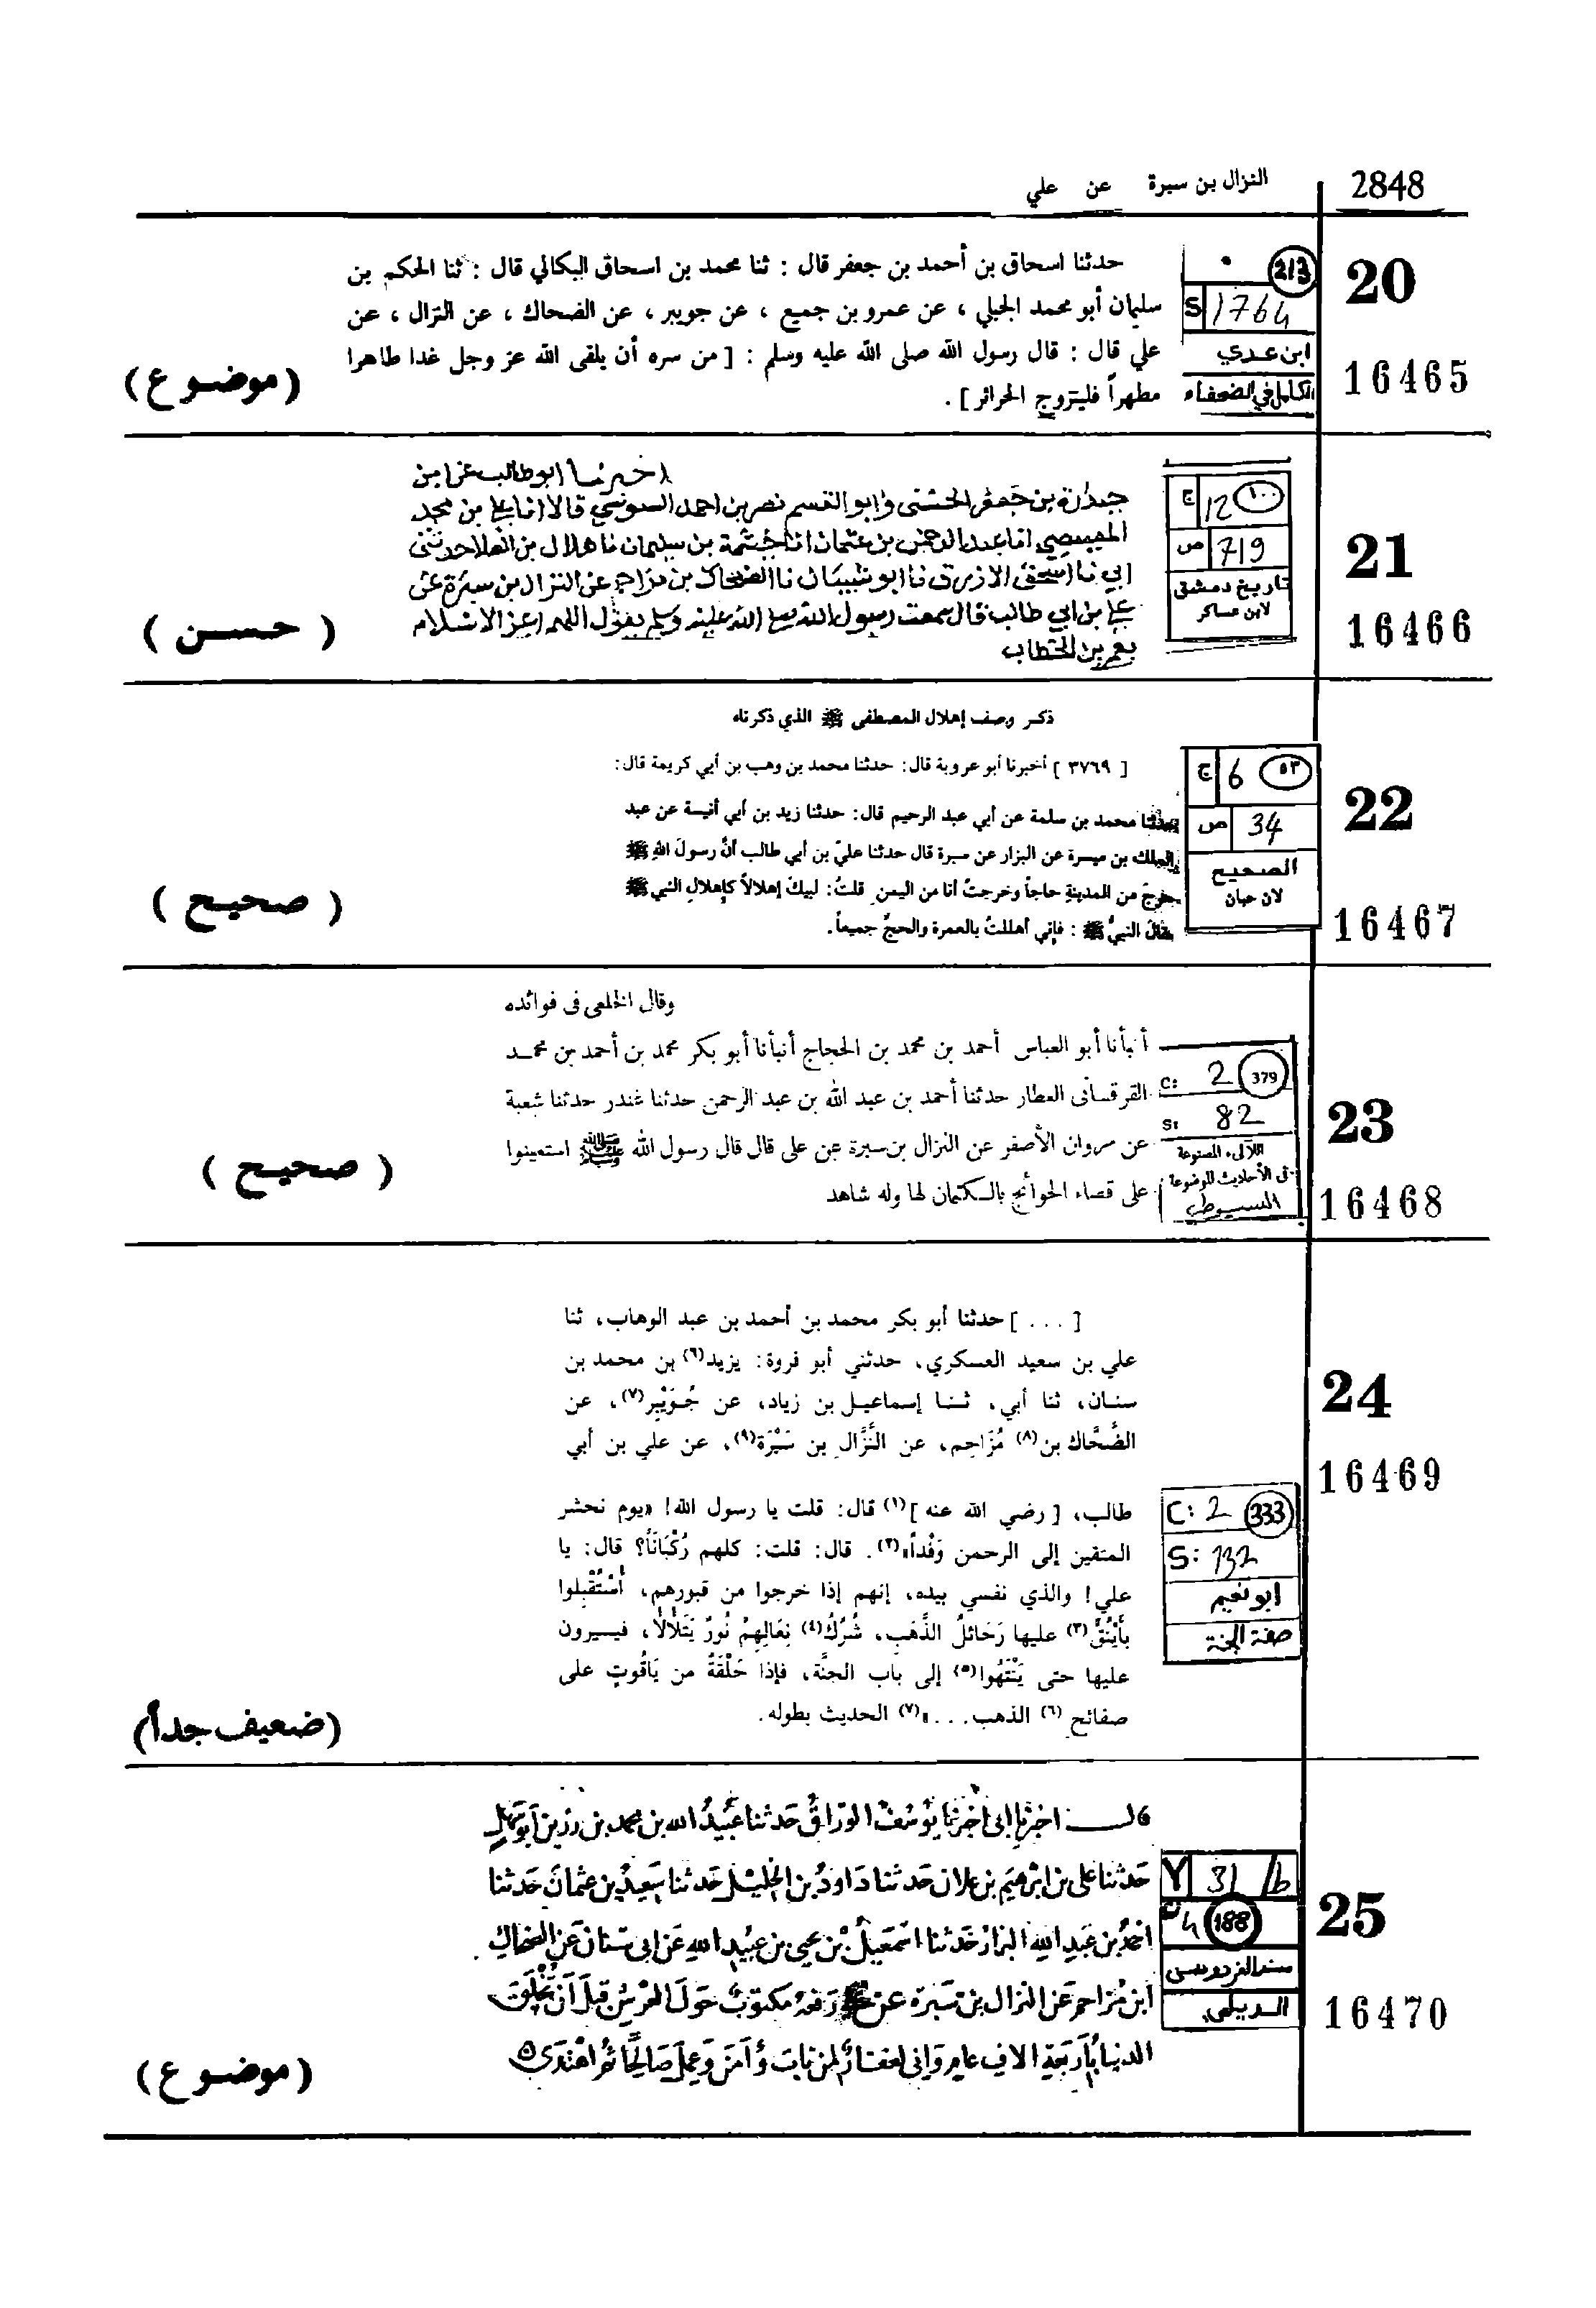 2848
النزال بن سبرة عن علي
20
16465
213
S 1764
ابن عدي
الكامل في الضعفاء
حدثنا اسحاق بن أحمد بن جعفر قال : ثنا محمد بن اسحاق البكالي قال : ثنا الحكم بن
سليمان أبو محمد الجبلي ، عن عمرو بن جميع ، عن جويبر ، عن الضحاك ، عن النزال ، عن
علي قال : قال رسول الله صلى الله عليه وسلم : [ من سره أن يلقى الله عز وجل غدا طاهرا
مطهراً فليتزوج الحرائر ] .
( موضوع )
21
16466
ج 12 ١٠٠
ص 719
تاريخ دمشق
لابن عساكر
اخبرنا ابو طالب علي بن
حيدرة بن جعفر الحسني وابو القسم نصر بن احمد السوسي قالا انا علي بن محمد
المصيصي انا عبد الرحمن بن عثمان انا خيثمة بن سليمان نا هلال بن العلا حدثني
ابي نا اسحق الازرق نا ابو نا الضحاك بن مزاحم عن النزال بن سبرة عن
علي بن ابي طالب قال سمعت رسول الله صلى الله عليه وسلم يقول اللهم اعز الاسلام
بعمر بن الخطاب
( حسن )
22
16467
ج 6 ٥٣
ص 34
الصحيح
لابن حبان
ذكر وصف إهلال المصطفى ﷺ الذي ذكرناه
[ ٣٧٦٩ ] أخبرنا أبو عروبة قال: حدثنا محمد بن وهب بن أبي كريمة قال:
حدثنا محمد بن سلمة عن أبي عبد الرحيم قال: حدثنا زيد بن أبي أنيسة عن عبد
الملك بن ميسرة عن البزار عن سبرة قال حدثنا عليّ بن أبي طالب أنَّ رسولَ اللهِ ﷺ
خرجَ من المدينةِ حاجاً وخرجتُ أنا من اليمنِ قلتُ: لبيكَ إهلالاً كإهلالِ النبي ﷺ
فقالَ النبيُّ ﷺ : فإني أهللتُ بالعمرة والحجِّ جميعاً.
( صحيح )
23
16468
C: 2 379
S: 82
اللآلىء المصنوعة
فى الأحاديث الموضوعة
السيوطي
وقال الخلعى فى فوائده
أنبأنا أبو العباس أحمد بن محمد بن الحجاج أنبأنا أبو بكر محمد بن أحمد بن محمد
القرقسانى العطار حدثنا أحمد بن عبد الله بن عبد الرحمن حدثنا غندر حدثنا شعبة
عن مروان الأصفر عن النزال بن سبرة عن على قال قال رسول الله ﷺ استعينوا
على قضاء الحوائج بالكتمان لها وله شاهد
( صحيح )
24
16469
C: 2 333
S: 132
ابو نعيم
صفة الجنة
[ . . . ] حدثنا أبو بكر محمد بن أحمد بن عبد الوهاب، ثنا
علي بن سعيد العسكري، حدثني أبو فروة: يزيد(٦) بن محمد بن
سنان، ثنا أبي، ثنا إسماعيل بن زياد، عن جُوَيْبِر(٧)، عن
الضَّحَّاك بن(٨) مُزَاحِم، عن النَّزَّال بن سَبْرَة(٩)، عن علي بن أبي
طالب، [ رضي الله عنه ](١) قال: قلت يا رسول الله! «يوم نحشر
المتقين إلى الرحمن وَفْداً»(٢). قال: قلت: كلهم رُكْبَاناً؟ قال: يا
علي! والذي نفسي بيده، إنهم إذا خرجوا من قبورهم، أُسْتُقْبِلوا
بأَيْنُقٍ(٣) عليها رَحَائلُ الذَّهَب، شُرُكُ(٤) نِعَالِهِمْ نُورٌ يَتَلَأْلَأُ، فيسيرون
عليها حتى يَنْتَهُوا(٥) إلى باب الجنَّة، فإذا حَلْقَةٌ من يَاقُوتٍ على
صفائح (٦) الذهب. . .»(٧) الحديث بطوله.
(ضعيف جداً)
25
16470
31 /b
188
مسند الفردوس
الديلمي
قال اخبرنا ابى اخبرنا يوسف الوراق حدثنا عبيد الله بن محمد بن
حدثنا على بن ابرهيم بن علان حدثنا داود بن الخليل حدثنا سعيد بن عثمان حدثنا
احمد بن عبد الله البزاز حدثنا اسمعيل بن يحيى بن عبيد الله عن ابى سنان عن الضحاك
ابن مزاحم عن النزال بن سبرة عن رفعه مكتوب حول العرش قبل أن تخلق
الدنيا بأربعة الاف عام وانى لغفار لمن تاب وآمن وعمل صالحا ثم اهتدى
( موضوع )